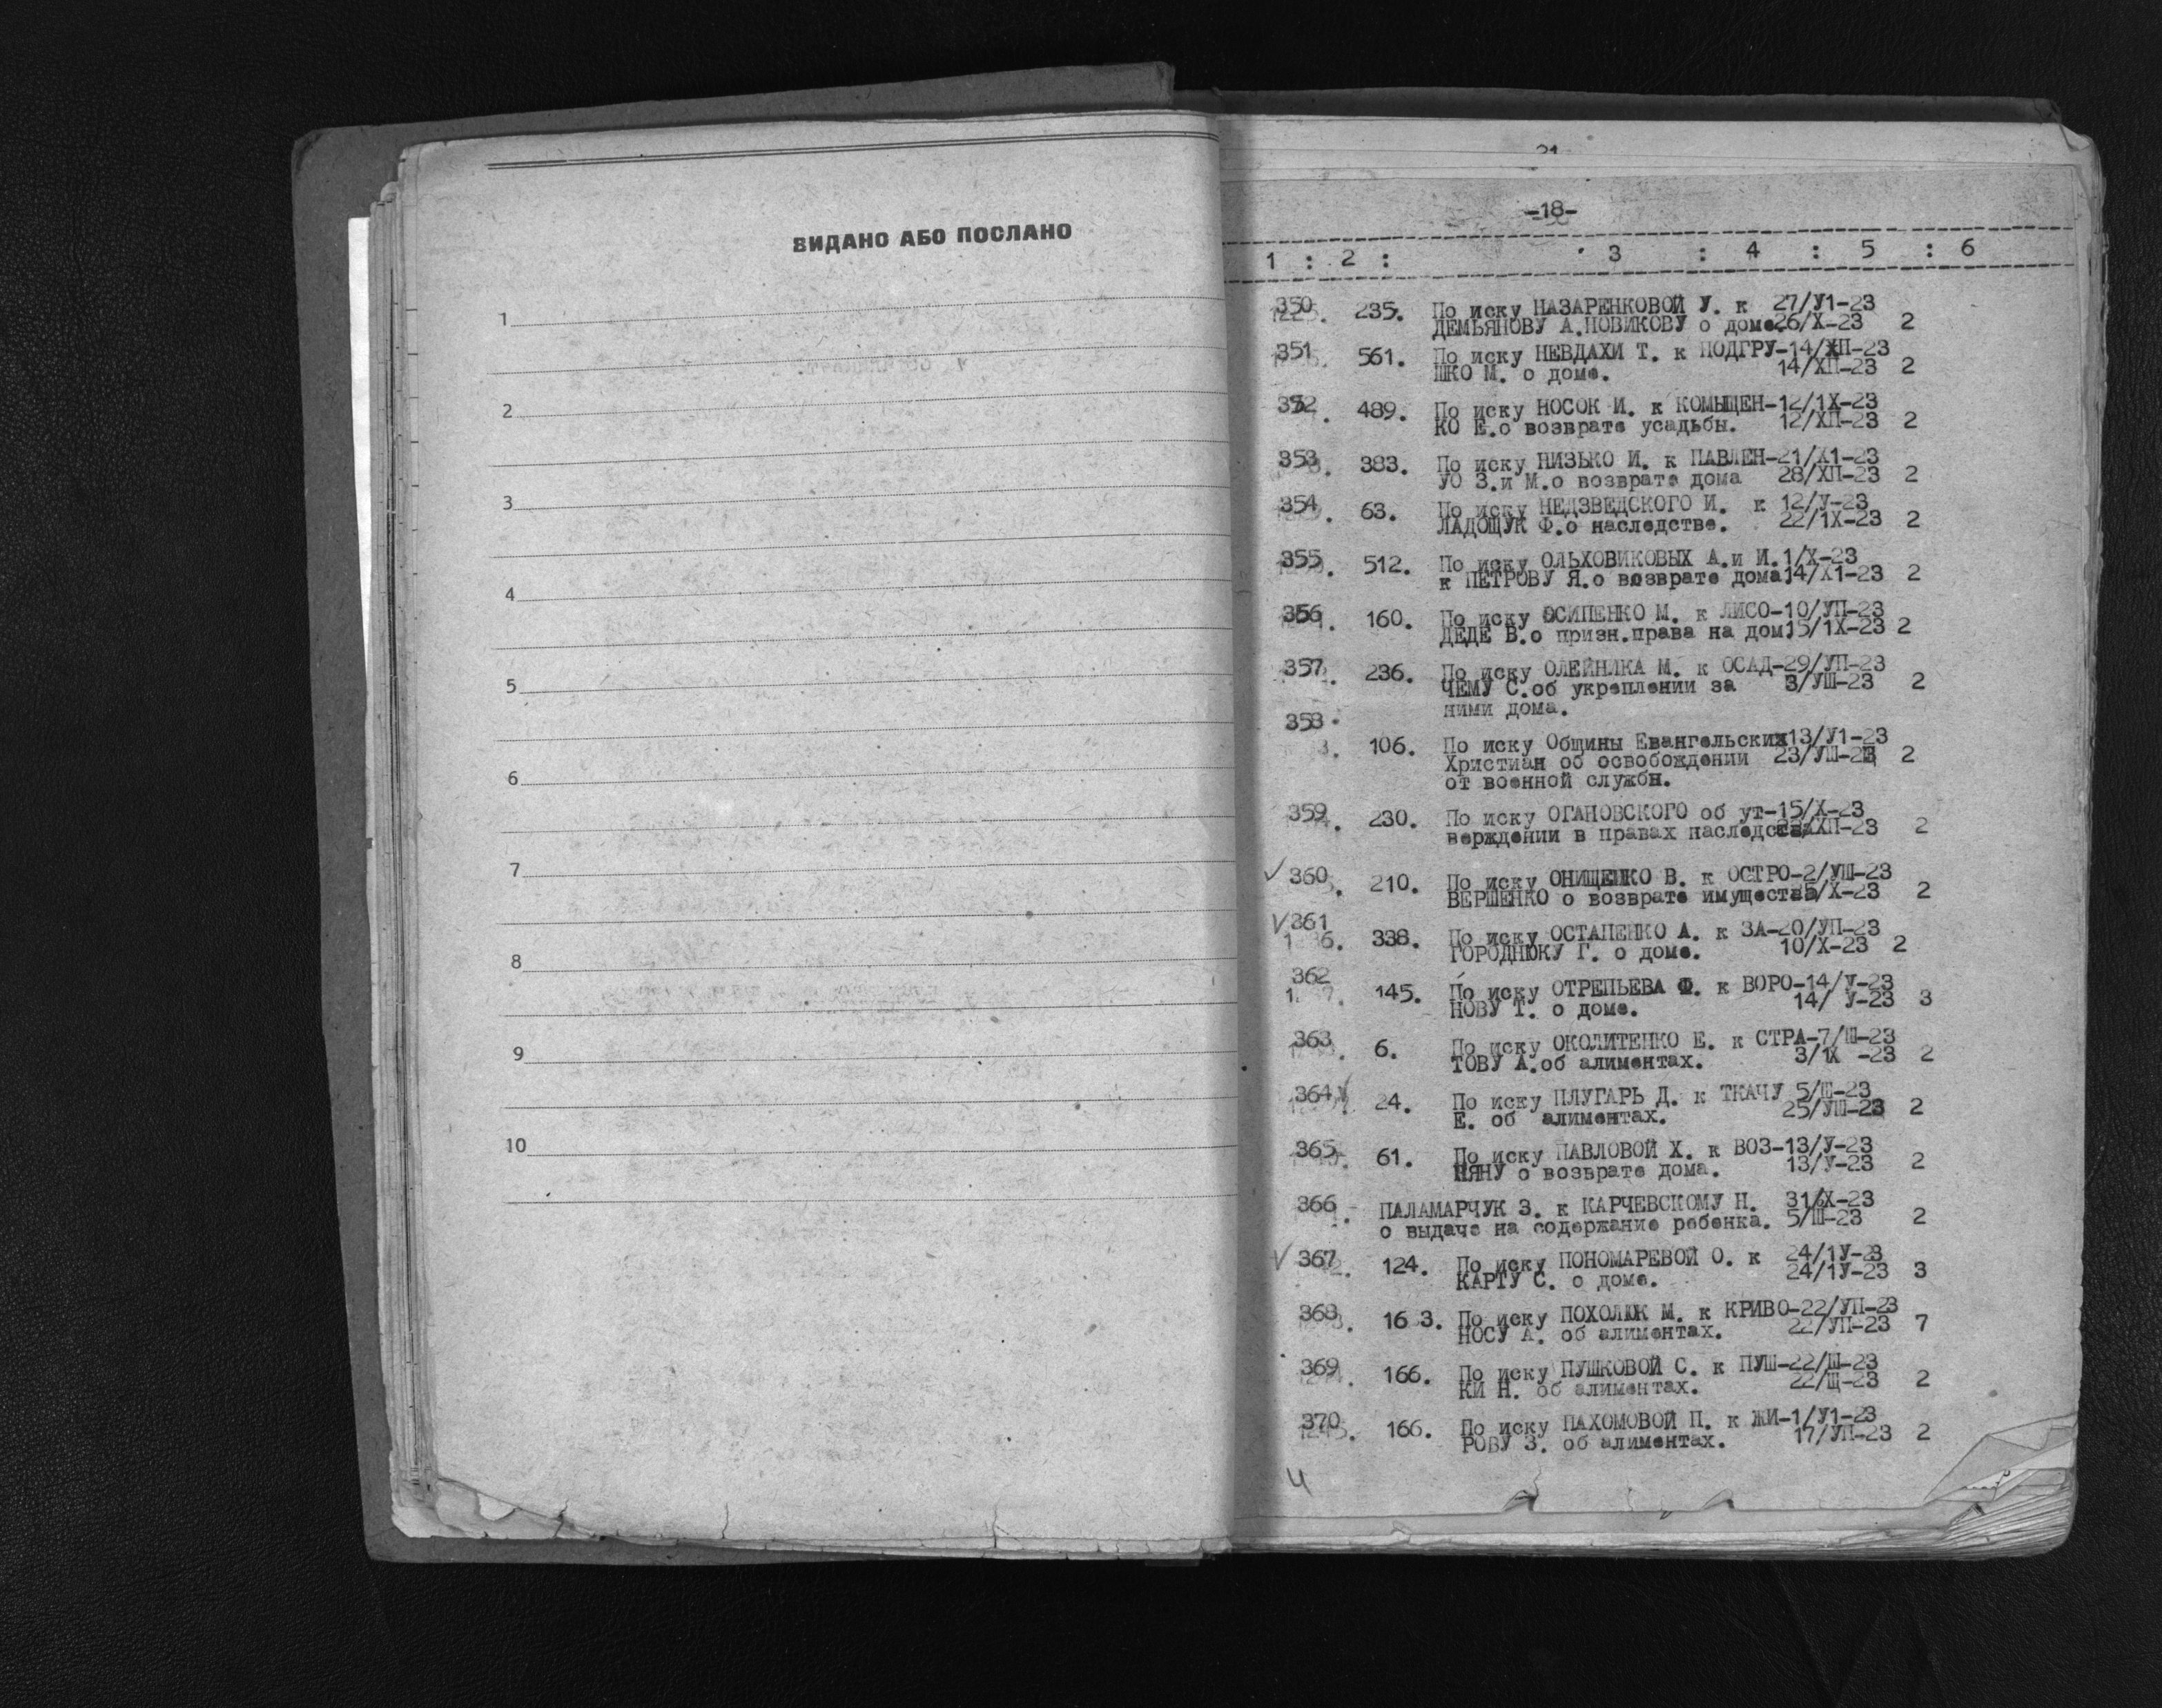 ВИДАНО АБО ПОСЛАНО
1
2
3
4
5
6
7
8
9
10
21
-18-
1 : 2 : 3 : 4 : 5 : 6
350 235. По иску НАЗАРЕНКОВОЙ У. к 27/У1-23
ДЕМЬЯНОВУ А.НОВИКОВУ о доме. 26/Х-23 2
351 561. По иску НЕВДАХИ Т. к ПОДГРУ-14/ХП-23
ШКО М. о доме. 14/ХП-23 2
352 489. По иску НОСОК И. к КОМЫШЕН-12/1Х-23
КО Е.о возврате усадьбы. 12/ХП-23 2
353 383. По иску НИЗЬКО И. к ПАВЛЕН-21/Х1-23
УО З.и М.о возврате дома 28/ХП-23 2
354. 63. По иску НЕДЗВЕДСКОГО И. к 12/У-23
ЛАДОЩУК Ф.о наследстве. 22/1Х-23 2
355. 512. По иску ОЛЬХОВИКОВЫХ А.и И.1/Х-23
к ПЕТРОВУ Я.о возврате дома14/Х1-23 2
356. 160. По иску ОСИПЕНКО М. к ЛИСО-10/УП-23
ДЕДЕ В.о призн.права на дом15/1Х-23 2
357. 236. По иску ОЛЕЙНИКА М. к ОСАД-29/УП-23
ЧЕМУ С.об укреплении за 3/УШ-23 2
ними дома.
358
106. По иску Общины Евангельских13/У1-23
Христиан об освобождении 23/УШ-23 2
от военной службн.
359. 230. По иску ОГАНОВСКОГО об ут-15/Х-23
верждении в правах наследства ХП-23 2
✓ 360. 210. По иску ОНИЩЕНКО В. к ОСТРО-2/УШ-23
ВЕРШЕНКО о возврате имущества /Х-23 2
✓ 361
338. По иску ОСТАПЕНКО А. к ЗА-20/УП-23
ГОРОДНЮКУ Г. о доме. 10/Х-23 2
362
145. По иску ОТРЕПЬЕВА Ф. к ВОРО-14/У-23
НОВУ Т. о доме. 14/ У-23 3
363. 6. По иску ОКОЛИТЕНКО Е. к СТРА-7/Ш-23
ТОВУ А.об алиментах. 3/1Х -23 2
364 24. По иску ПЛУГАРЬ Д. к ТКАЧУ 5/Ш-23
Е. об алиментах. 25/УШ-23 2
365. 61. По иску ПАВЛОВОЙ Х. к ВОЗ-13/У-23
НЯНУ о возврате дома. 13/У-23 2
366. ПАЛАМАРЧУК З. к КАРЧЕВСКОМУ Н. 31/Х-23
о выдаче на содержание ребенка. 5/Ш-23 2
✓ 367. 124. По иску ПОНОМАРЕВОЙ О. к 24/1У-23
КАРТУ С. о доме. 24/1У-23 3
368. 163. По иску ПОХОЛЮК М. к КРИВО-22/УП-23
НОСУ А. об алиментах. 22/УП-23 7
369. 166. По иску ПУШКОВОЙ С. к ПУШ-22/Ш-23
КИ Н. об алиментах. 22/Щ-23 2
370. 166. По иску ПАХОМОВОЙ П. к ЖИ-1/У1-23
РОВУ З. об алиментах. 17/УП-23 2